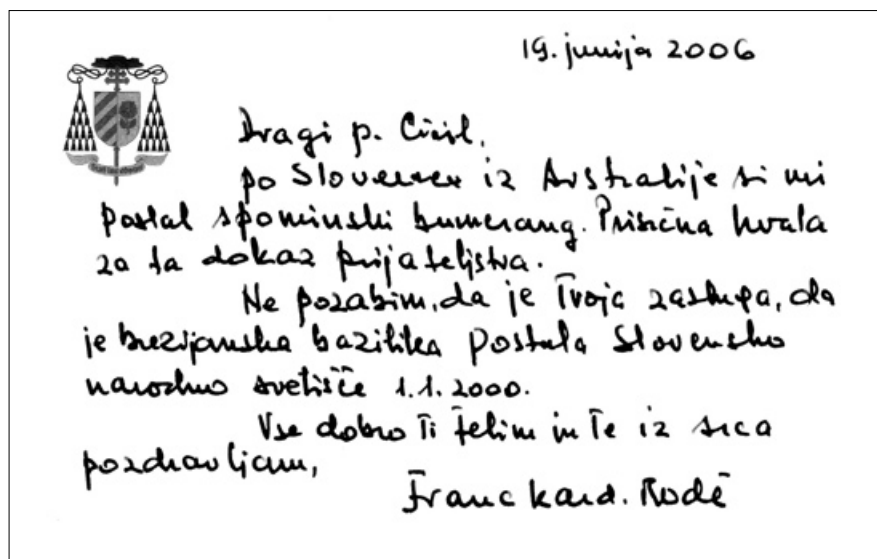 19. junija 2006
Dragi p. Ciril,
po Slovencu iz Avstralije si mi
poslal spominski bumerang. Prisrčna hvala
za ta dokaz prijateljstva.
Ne pozabim, da je Tvoja zasluga, da
je brezijanska bazilika postala Slovensko
narodno svetišče 1.1.2000.
Vse dobro Ti želim in Te iz srca
pozdravljam,
Franc kard. Rodé